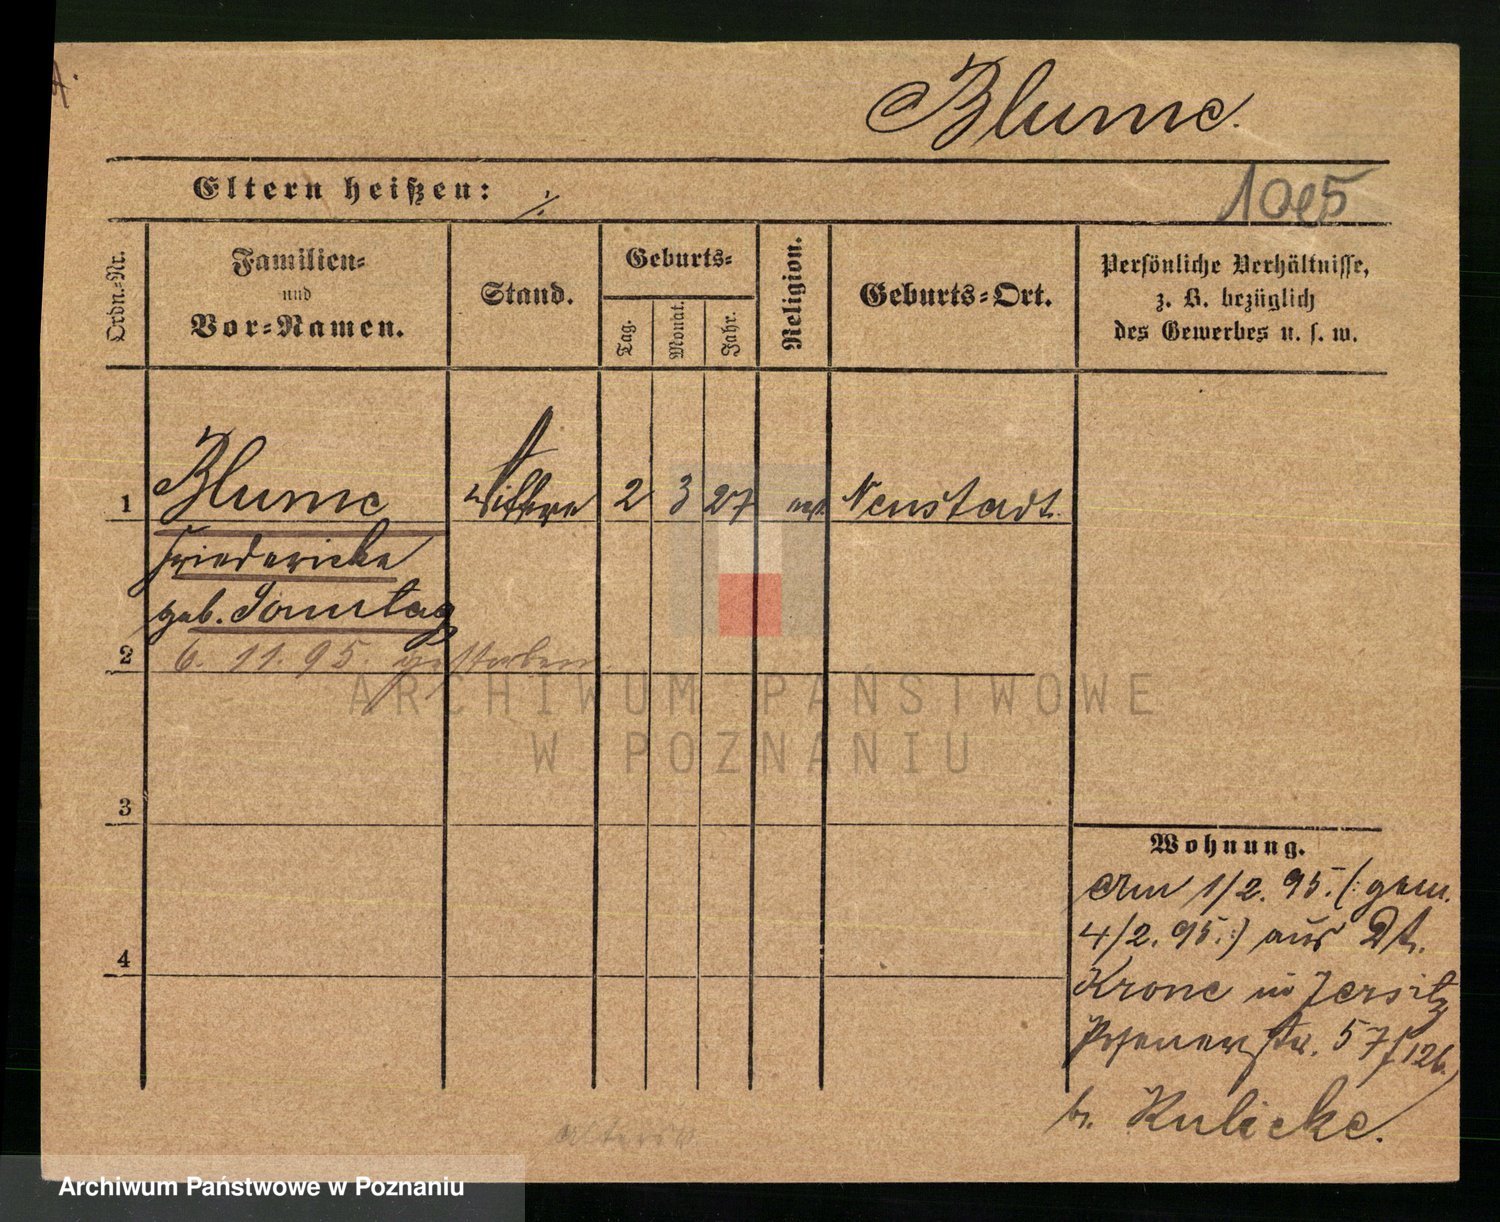 Blume.
Eltern heißen: ./.
Ordn.-Nr.
Familien-
und
Vor-Namen.
Stand.
Geburts-
Tag.
Monat.
Jahr.
Religion.
Geburts-Ort.
Persönliche Verhältnisse,
z. B. bezüglich
des Gewerbes u. s. w.
1 Blume Wittwe 2 3 27 Neustadt.
Friedericke
geb. Sonntag
2 6. 11. 95. gestorben.
3
4
Wohnung.
Am 1/2. 95. (: gem.
4/2. 95. :) aus Dt.
Krone in Jersitz
Posenerstr. 57/126.
b. Kulicke.
ARCHIWUM PAŃSTWOWE
W POZNANIU
Archiwum Państwowe w Poznaniu